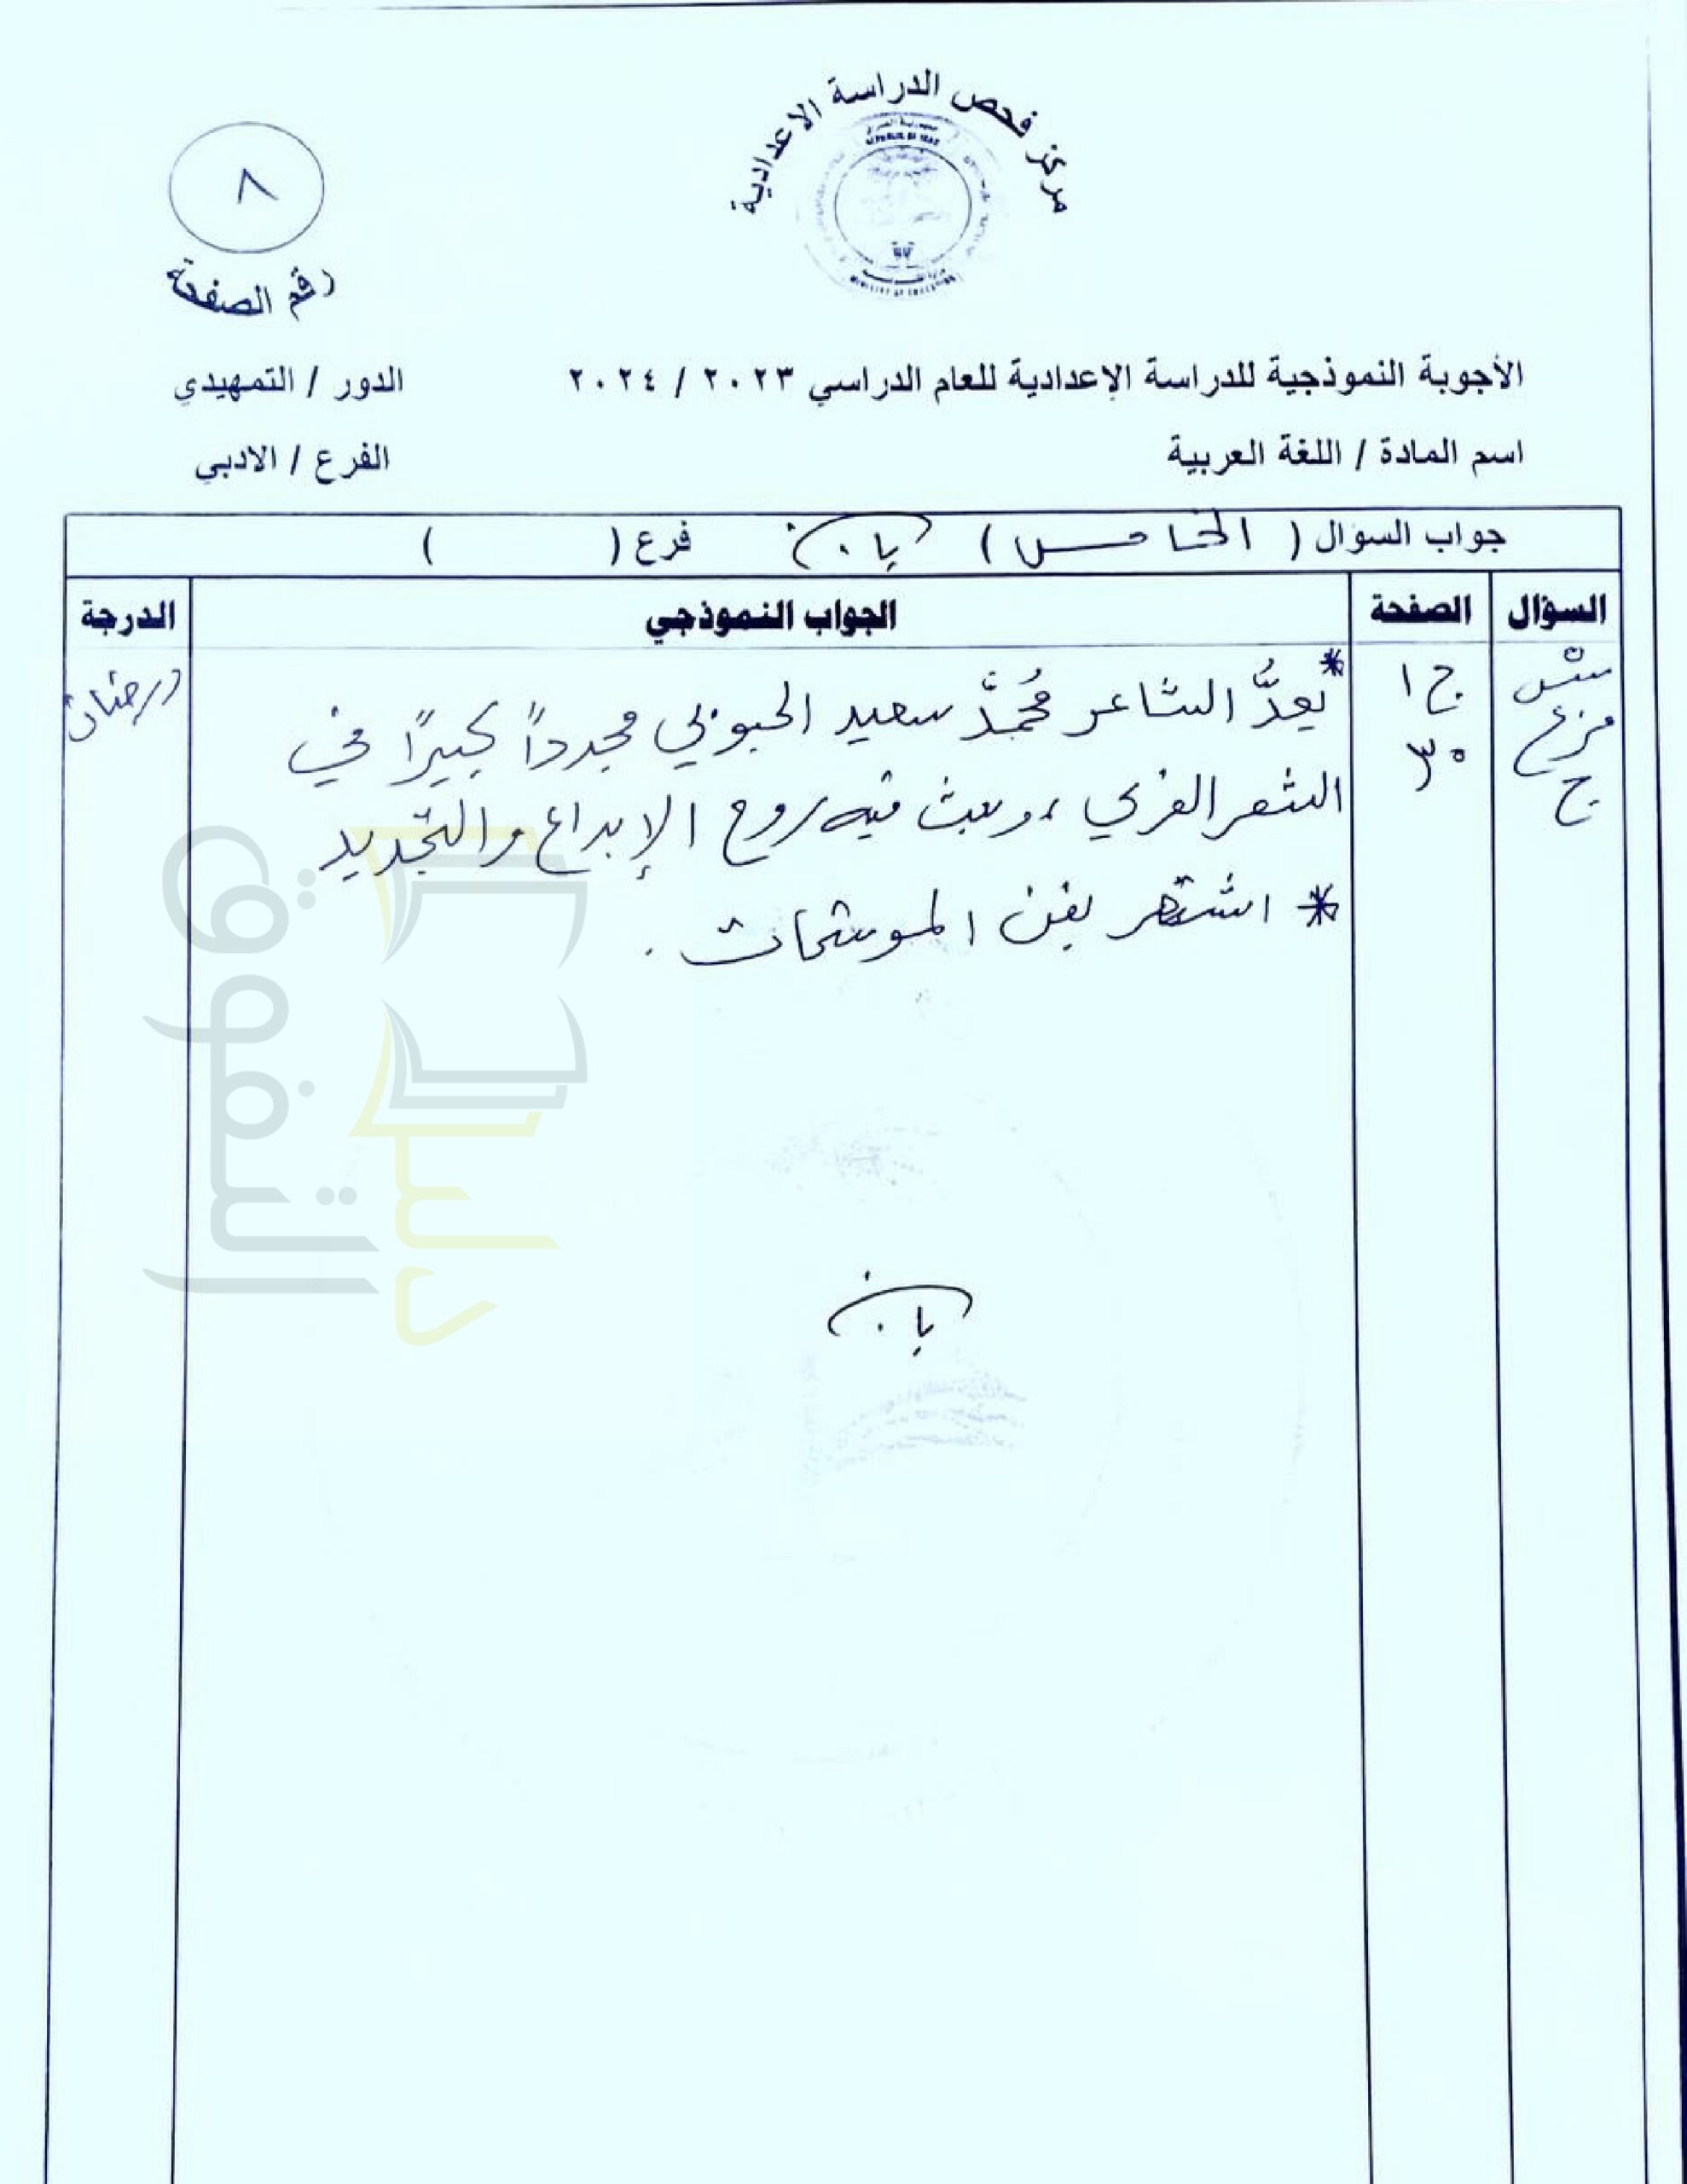 مركز فحص الدراسة الاعدادية
REPUBLIC OF IRAQ
MINISTRY OF EDUCATION
٨
رقم الصفحة
الأجوبة النموذجية للدراسة الإعدادية للعام الدراسي ٢٠٢٣ / ٢٠٢٤
الدور / التمهيدي
اسم المادة / اللغة العربية
الفرع / الادبي
جواب السؤال ( الخامس ) فرع ( )
السؤال
الصفحة
الجواب النموذجي
الدرجة
فرع
ج
ج ١
٣٥
* يعدُّ الشاعر مُحمَّد سعيد الحبوبي مجدداً كبيرًا في
الشعر العربي ، وبعث فيه روح الإبداع والتجديد
* اشتهر بفن الموشحات .
درجتان
دليل
التفوق